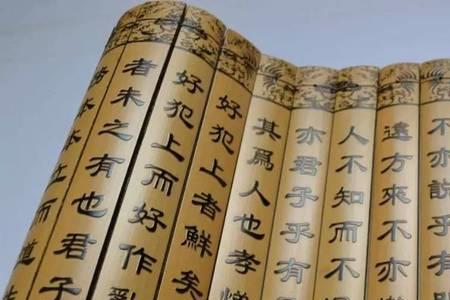 不亦説乎有
遠方來不亦
人不知而不
亦君子乎有
其爲人也孝
好犯上者鮮矣
好犯上而好作亂
者未之有也君子
本本立而道